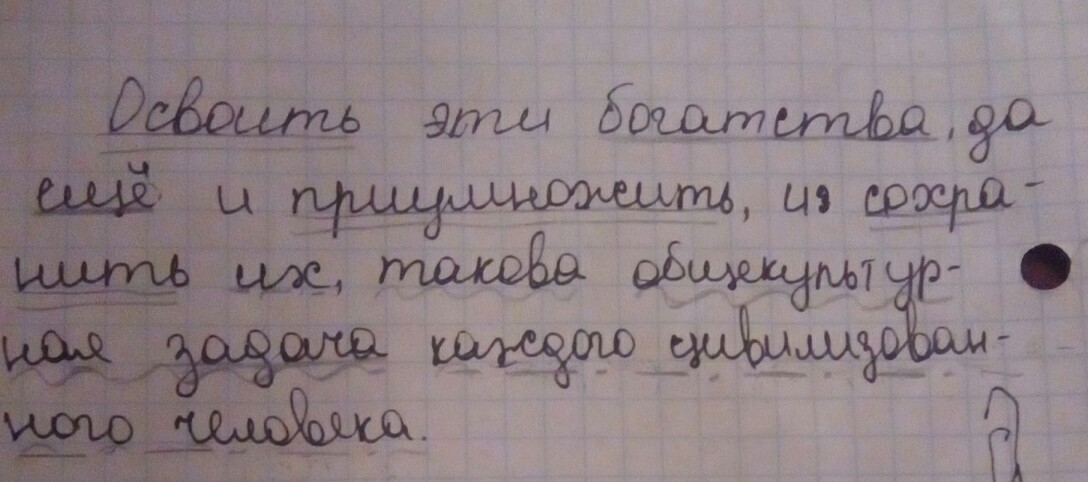 Освоить эти богатства, да
ещё и приумножить, из сохра-
нить их, такова общекультур-
ная задача каждого цивилизован-
ного человека.